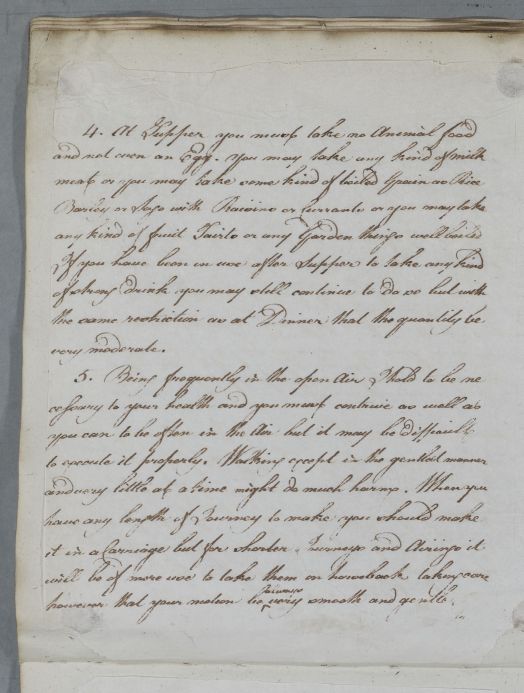 4. At Supper you must take no Animal food
and not even an Egg. You may take any kind of milk
meat or you may take some kind of boiled Grain as Rice
Barley or Sago with Raisins or Currants or you may take
any kind of fruit Tairts or any Garden things well boiled
If you have been in use after Supper to take any kind
of strong drink you may still continue to do so but with
the same restriction as at Dinner that the quantity be
very moderate.
5. Being frequently in the open Air I hold to be ne
cessary to your health and you must contrive as well as
you can to be often in the Air but it may be difficult
to execute it properly. Walking except in the gentlest manner
and very little at a time might do much harm. When you
have any length of Journey to make you should make
it in a Carriage but for shorter Journeys and Airings it
will be of more use to take them on horseback taking care
however that your motion be always very smooth and gentle.